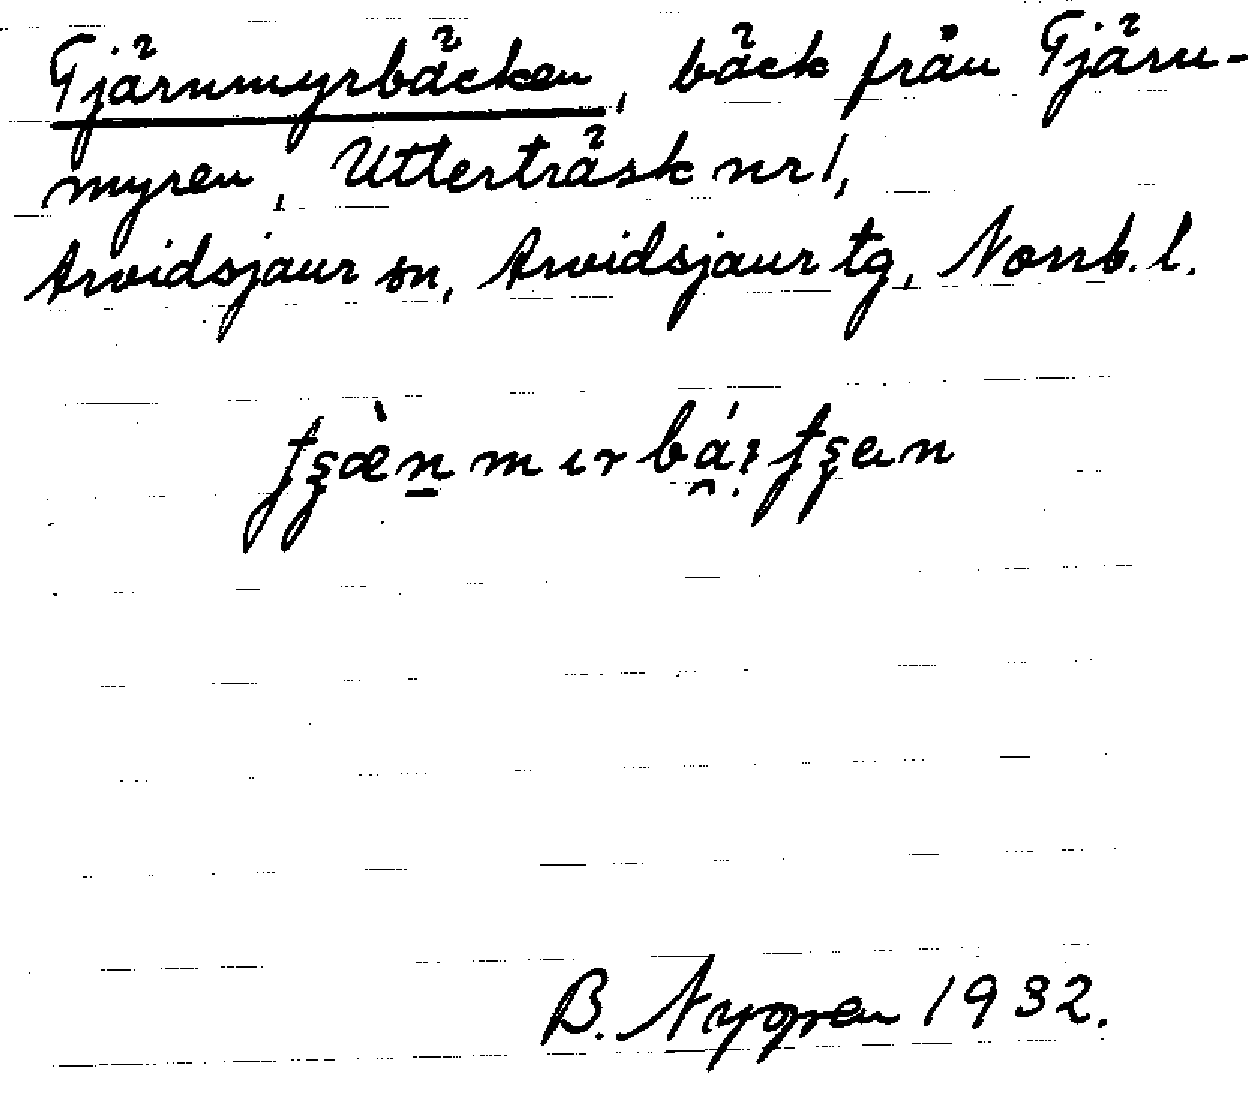 Tjärnmyrbäcken, bäck från Tjärn-
myren, Utterträsk nr 1,
Arvidsjaur sn, Arvidsjaur tg, Norrb. l.
B. Nygren 1932.